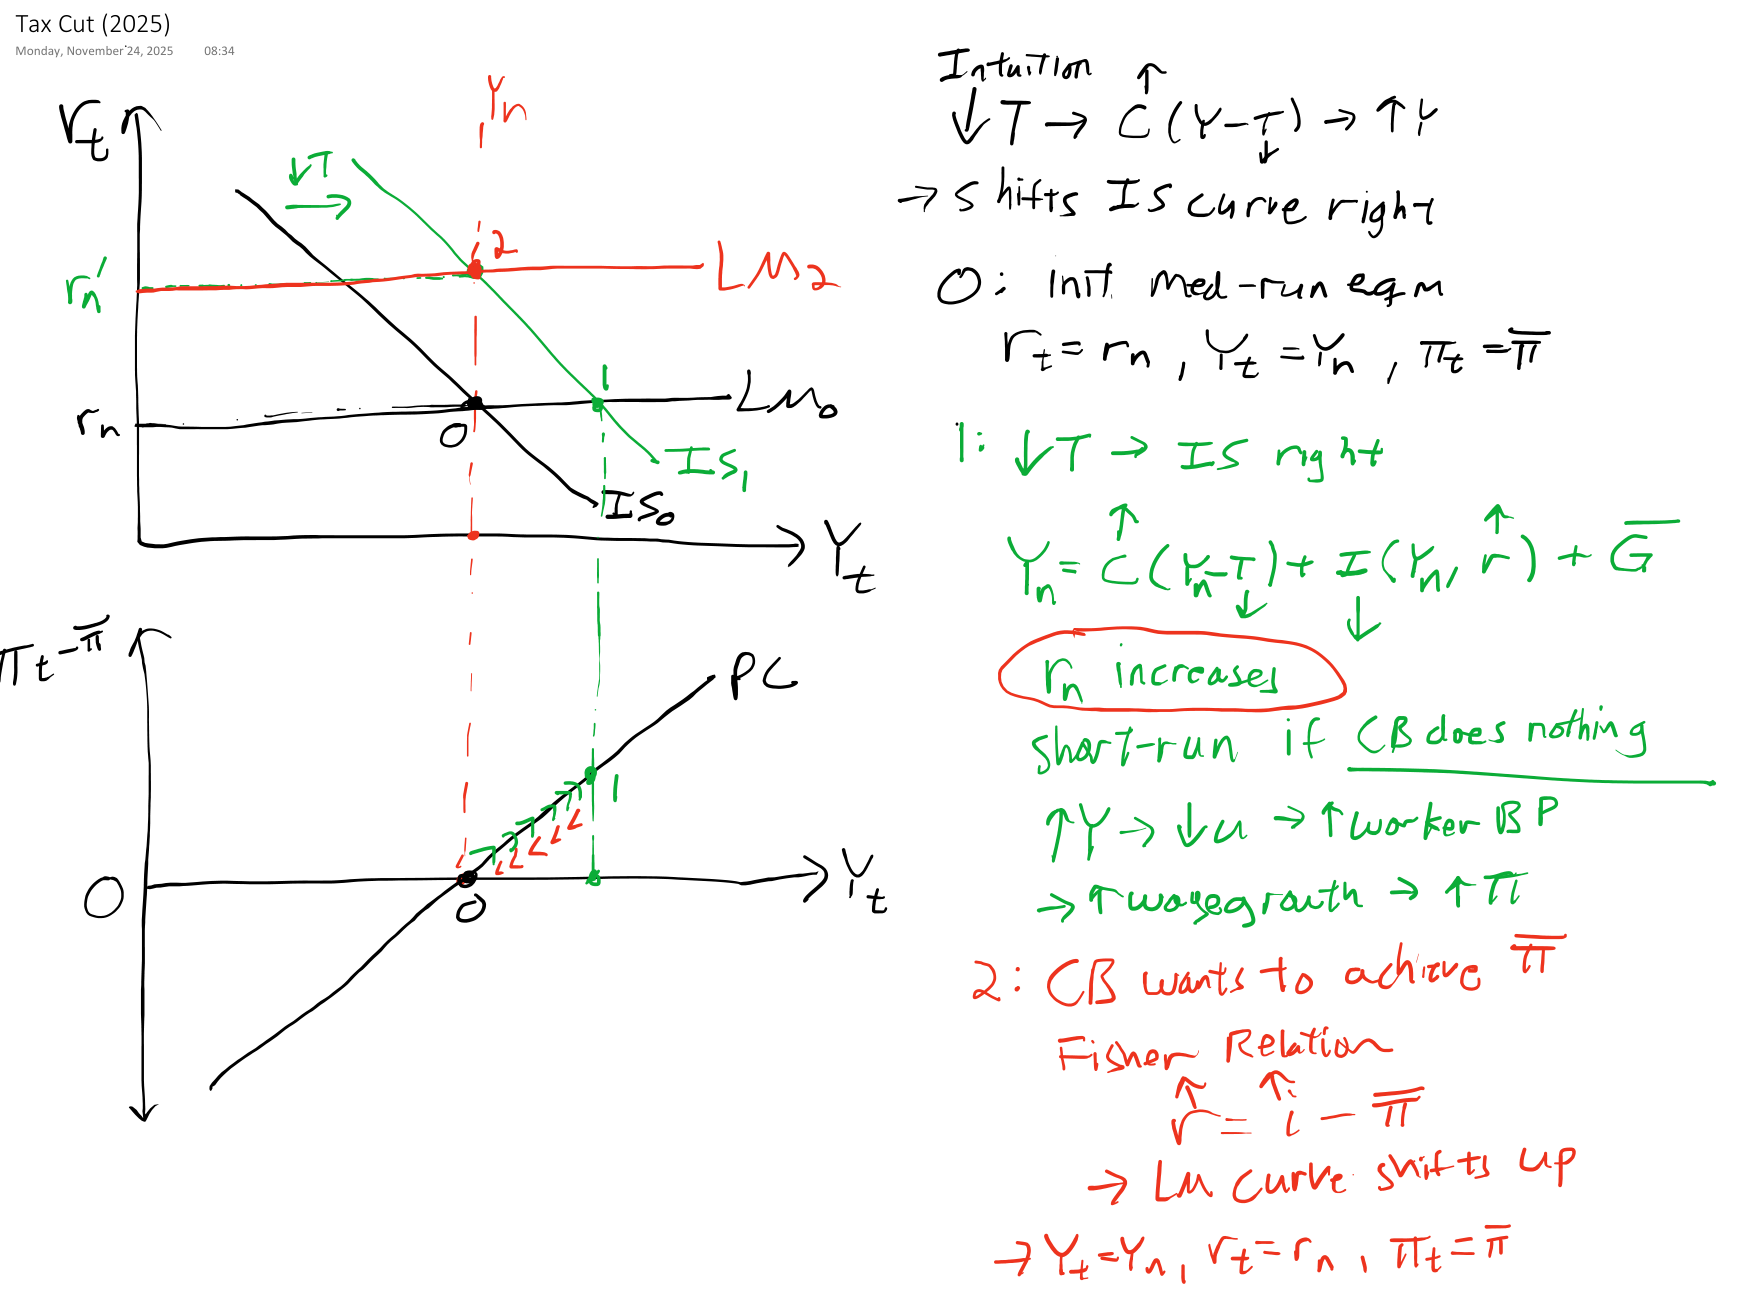 Tax Cut (2025)
Monday, November 24, 2025 08:34
Yn
rt
↓T
→
2
rn'
LM2
1
rn
LM0
0
IS1
IS0
Yt
πt-π̅
PC
1
0
Yt
0
Intuition ↑
↓T → C(Y-T) → ↑Y
↓
→ shifts IS curve right
0: init. med-run eqm
rt = rn, Yt = Yn, πt = π̅
1: ↓T → IS right
↑ ↑
Yn = C(Yn-T) + I(Yn, r) + G̅
↓ ↓
rn increases
short-run if CB does nothing
↑Y → ↓u → ↑worker BP
→ ↑wage growth → ↑π
2: CB wants to achieve π̅
Fisher Relation
↑ ↑
r = i - π̅
→ LM curve shifts up
→ Yt = Yn, rt = rn, πt = π̅